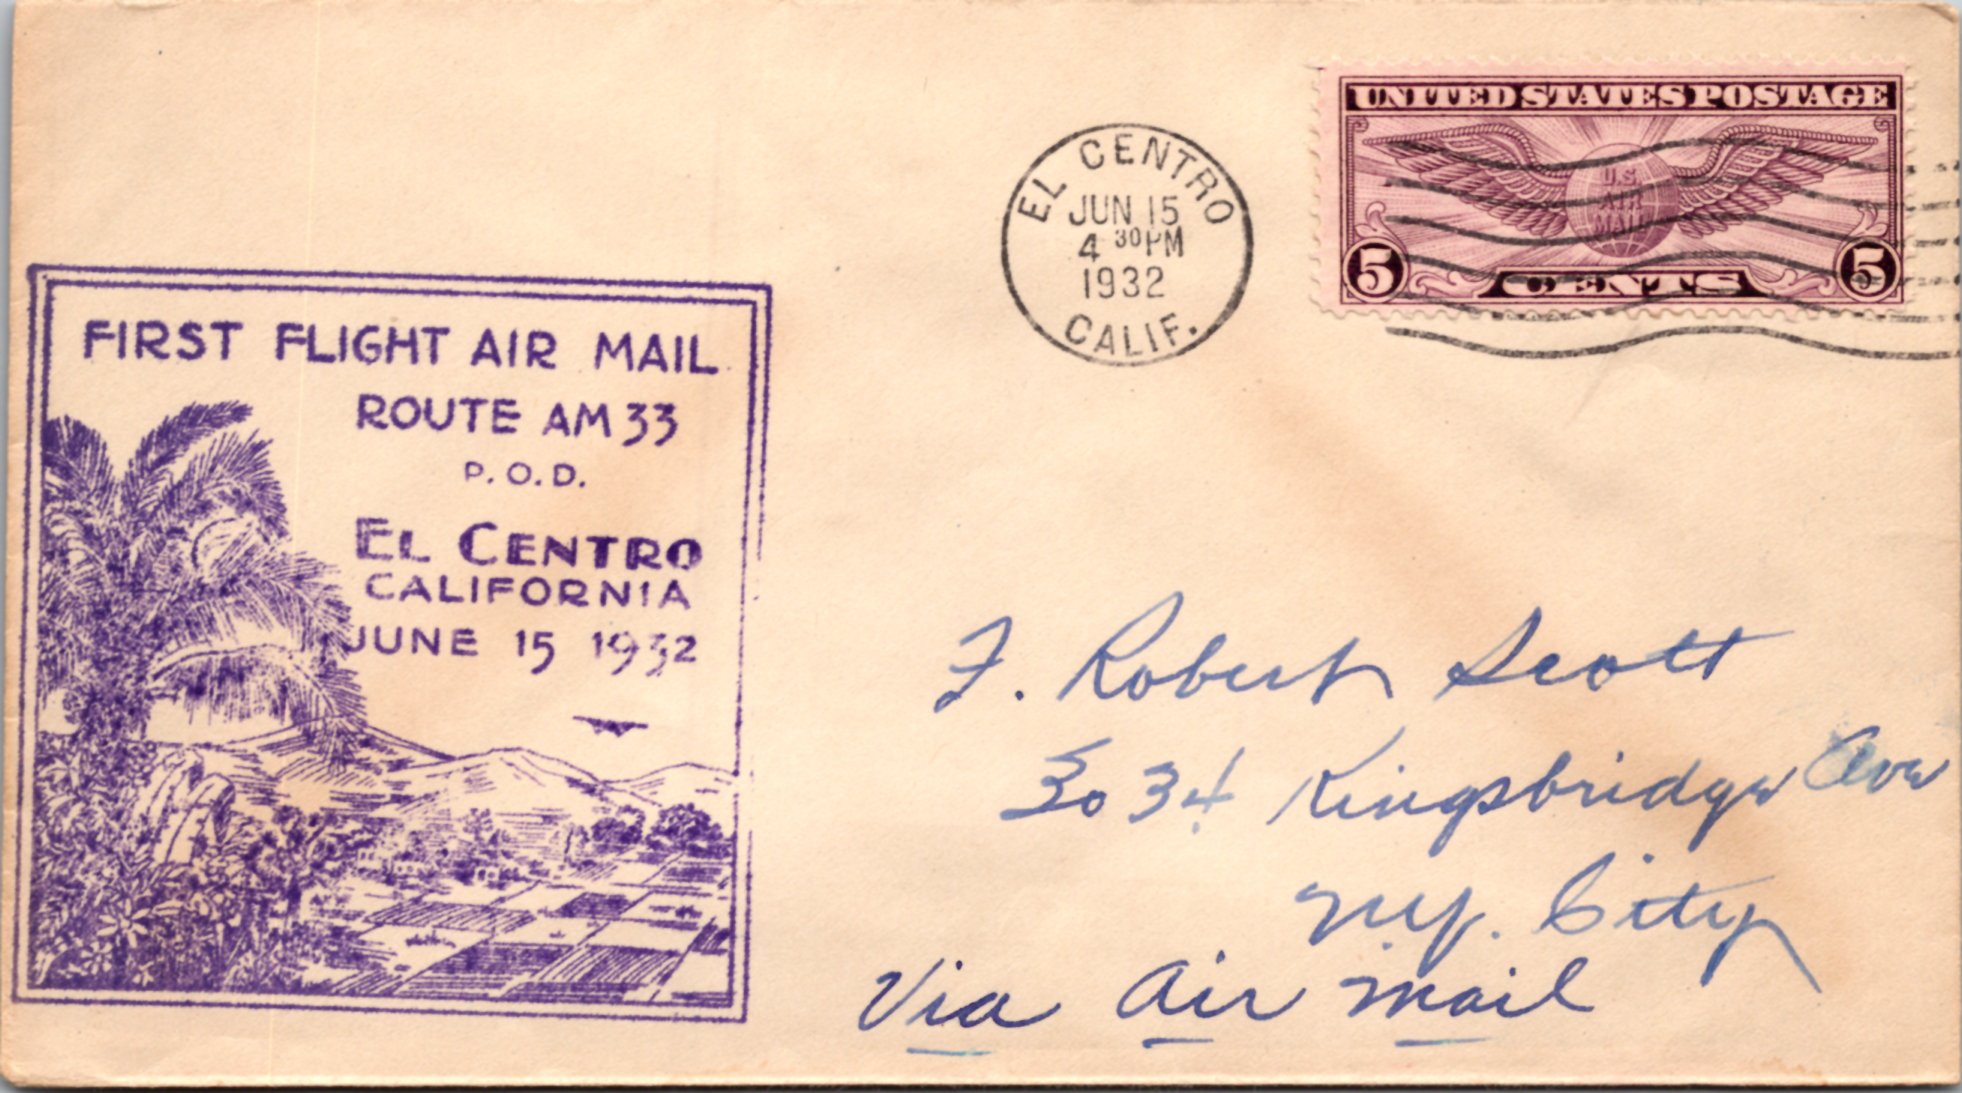 FIRST FLIGHT AIR MAIL
ROUTE AM 33
P.O.D.
EL CENTRO
CALIFORNIA
JUNE 15 1932
EL CENTRO
JUN 15
4 30 PM
1932
CALIF.
UNITED STATES POSTAGE
U.S
AIR
MAIL
5 CENTS 5
F. Robert Scott
3034 Kingsbridge Ave
N.Y. City
Via Air Mail